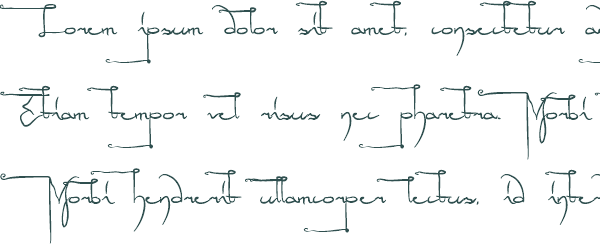 Lorem ipsum dolor sit amet, consectetur a
Etiam tempor vel risus nec pharetra. Morbi
Morbi hendrerit ullamcorper lectus, id inter